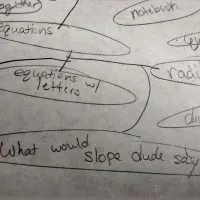 together
equations
notebush
equations w/
letters
radi
du
What would
slope dude say